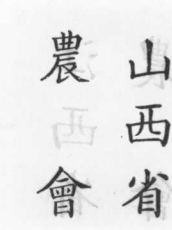 山西省
農會